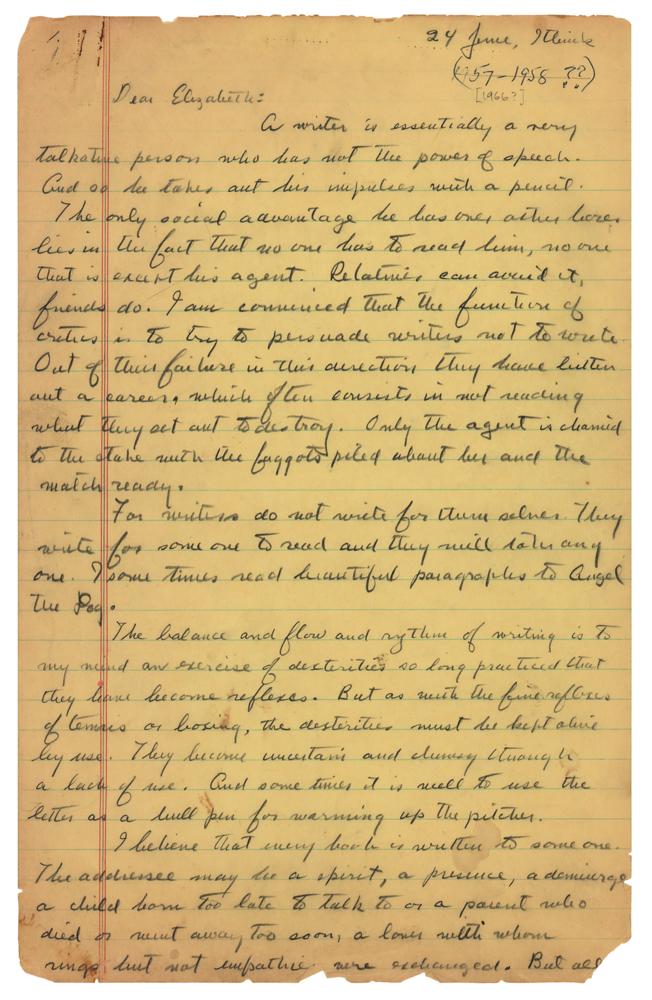 24 June, I think
(1957-1958 ??)
[1966?]
Dear Elizabeth:
A writer is essentially a very
talkative person who has not the power of speech.
And so he takes out his impulses with a pencil.
The only social advantage he has over other bores
lies in the fact that no one has to read him, no one
that is except his agent. Relatives can avoid it,
friends do. I am convinced that the function of
critics is to try to persuade writers not to write.
Out of their failure in this direction they have bitten
out a career, which often consists in not reading
what they set out to destroy. Only the agent is chained
to the stake with the faggots piled about her and the
match ready.
For writers do not write for them selves. They
write for some one to read and they will take any
one. I some times read beautiful paragraphs to Angel
the Dog.
The balance and flow and rythm of writing is to
my mind an exercise of dexterities so long practiced that
they have become reflexes. But as with the fine reflexes
of tennis or boxing, the dexterities must be kept alive
by use. They become uncertain and clumsy through
a lack of use. And some times it is well to use the
letter as a bull pen for warming up the pitcher.
I believe that every book is written to some one.
The addressee may be a spirit, a presence, a demiurge
a child born too late to talk to or a parent who
died or went away too soon, a lover with whom
rings but not empathie were exchanged. But all